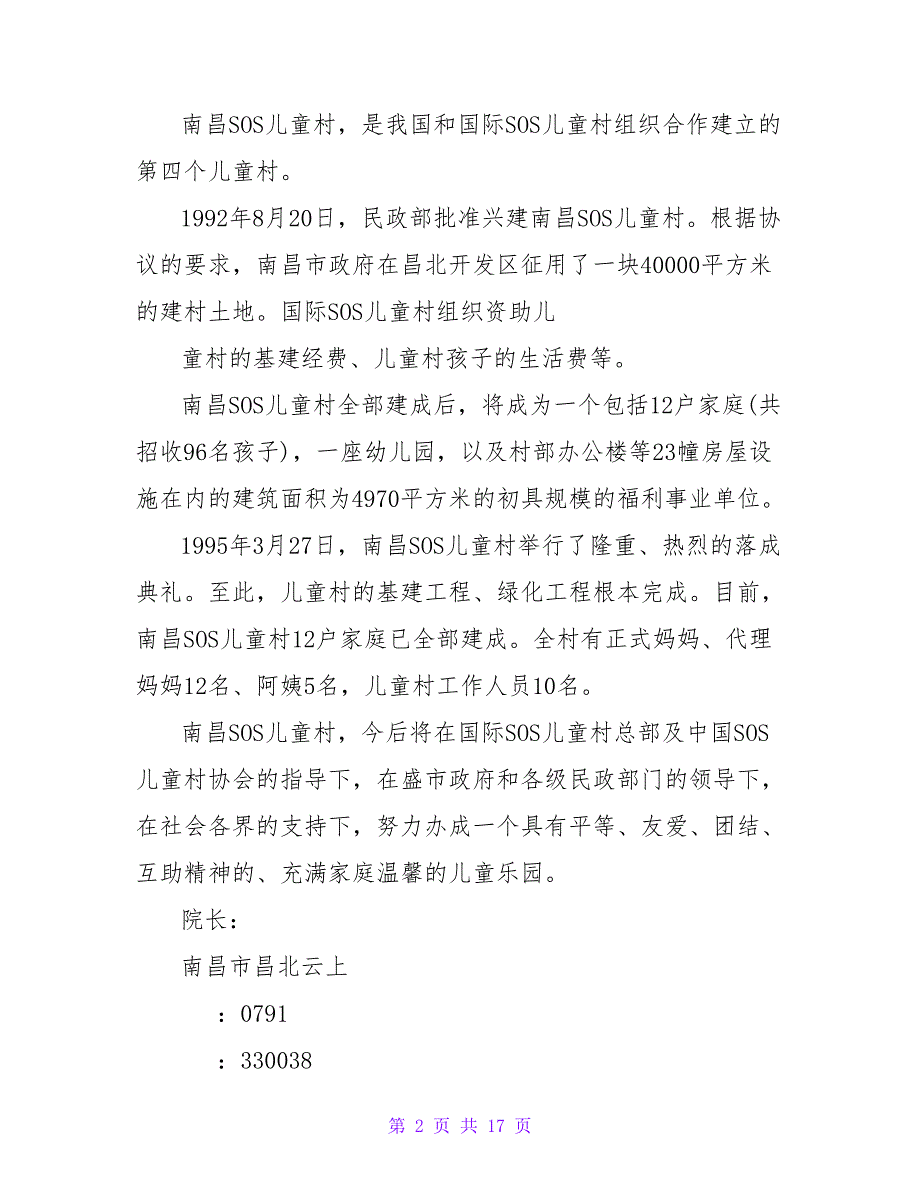 南昌SOS儿童村，是我国和国际SOS儿童村组织合作建立的
第四个儿童村。
1992年8月20日，民政部批准兴建南昌SOS儿童村。根据协
议的要求，南昌市政府在昌北开发区征用了一块40000平方米
的建村土地。国际SOS儿童村组织资助儿
童村的基建经费、儿童村孩子的生活费等。
南昌SOS儿童村全部建成后，将成为一个包括12户家庭(共
招收96名孩子)，一座幼儿园，以及村部办公楼等23幢房屋设
施在内的建筑面积为4970平方米的初具规模的福利事业单位。
1995年3月27日，南昌SOS儿童村举行了隆重、热烈的落成
典礼。至此，儿童村的基建工程、绿化工程根本完成。目前，
南昌SOS儿童村12户家庭已全部建成。全村有正式妈妈、代理
妈妈12名、阿姨5名，儿童村工作人员10名。
南昌SOS儿童村，今后将在国际SOS儿童村总部及中国SOS
儿童村协会的指导下，在盛市政府和各级民政部门的领导下，
在社会各界的支持下，努力办成一个具有平等、友爱、团结、
互助精神的、充满家庭温馨的儿童乐园。
院长：
南昌市昌北云上
：0791
：330038
第 2 页 共 17 页